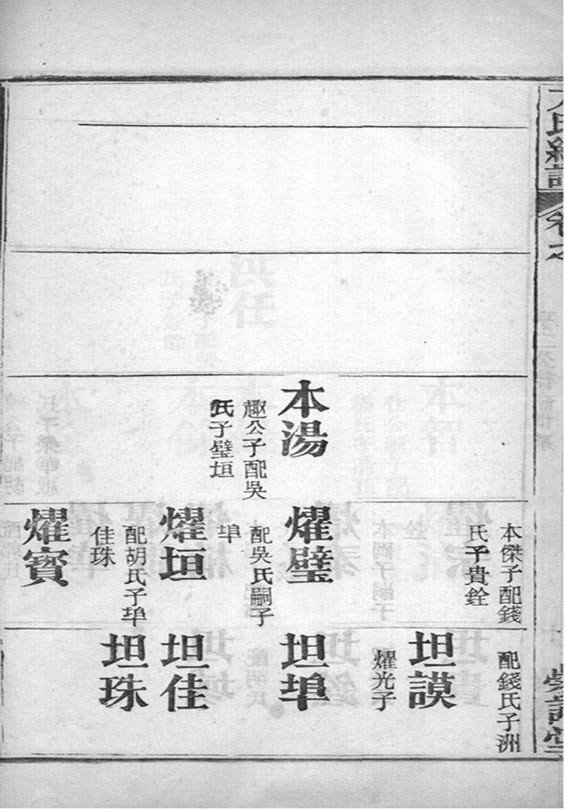 本傑子配錢
氏子貴銓
配錢氏子洲
坦謨
耀光子
本湯
趣公子配吳
氏子璧垣
耀璧
配吳氏嗣子
埠
坦埠
耀垣
配胡氏子埠
佳珠
坦佳
坦珠
耀寶